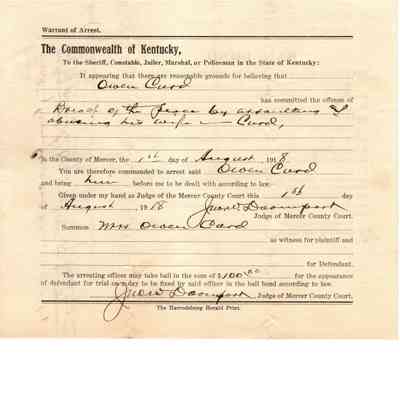 Warrant of Arrest.
The Commonwealth of Kentucky,
To the Sheriff, Constable, Jailer, Marshal, or Policeman in the State of Kentucky:
It appearing that there are reasonable grounds for believing that
Owen Curd
has committed the offense of
Breach of the Peace by assaulting &
abusing his wife — Curd,
in the County of Mercer, the 1st day of August 1918
You are therefore commanded to arrest said Owen Curd
and bring him before me to be dealt with according to law.
Given under my hand as Judge of the Mercer County Court this 1st day
of August 1918 Jno W Davenport
Judge of Mercer County Court.
Summon Mrs Owen Curd
as witness for plaintiff and
for Defendant.
The arresting officer may take bail in the sum of $100.00 for the appearance
of defendant for trial on a day to be fixed by said officer in the bail bond according to law.
Jno W Davenport Judge of Mercer County Court.
The Harrodsburg Herald Print.